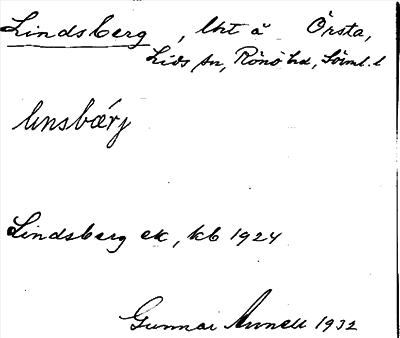 Lindsberg, lht å Örsta,
Lids sn, Rönö hd, Söml. l
linsbærj
Lindsberg ek, kb 1924
Gunnar 1932